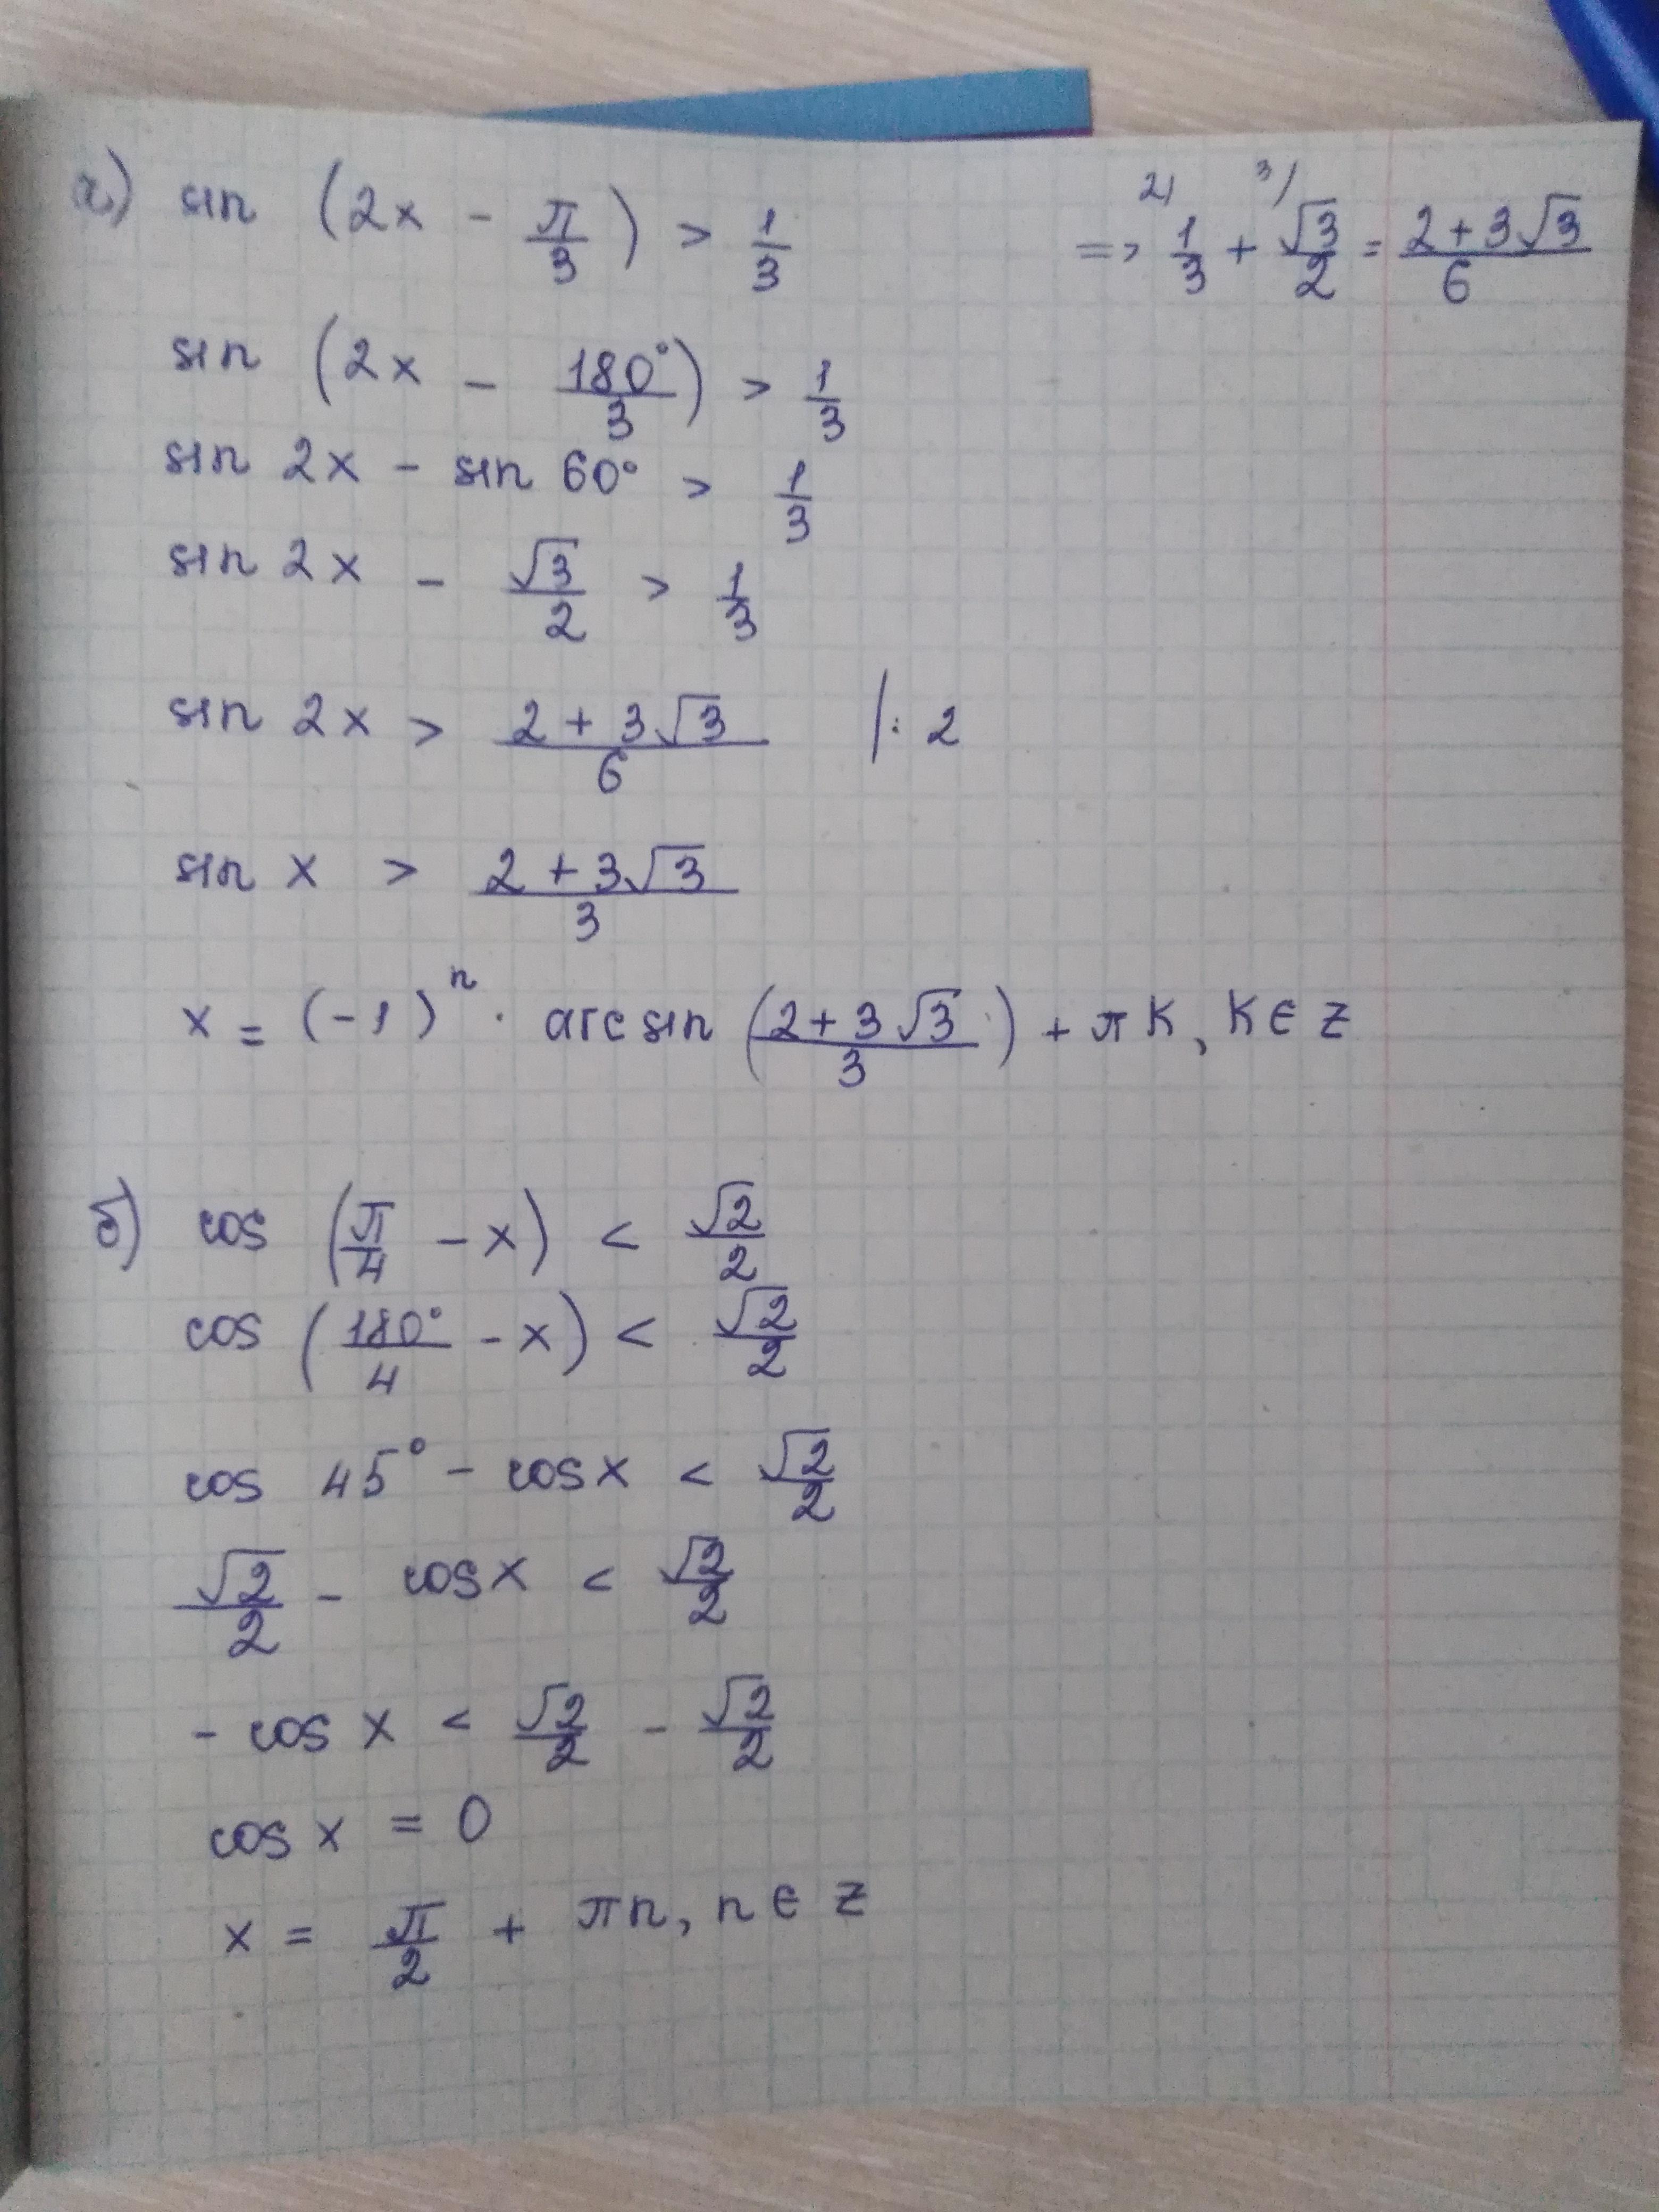 а) sin (2x - π/3) > 1/3 => 1/3 + √3/2 = (2 + 3√3)/6
sin (2x - 180°/3) > 1/3
sin 2x - sin 60° > 1/3
sin 2x - √3/2 > 1/3
sin 2x > (2 + 3√3)/6 |: 2
sin x > (2 + 3√3)/3
x = (-1)ⁿ · arcsin ((2 + 3√3)/3) + πk, k ∈ Z
б) cos (π/4 - x) < √2/2
cos (180°/4 - x) < √2/2
cos 45° - cos x < √2/2
√2/2 - cos x < √2/2
- cos x < √2/2 - √2/2
cos x = 0
x = π/2 + πn, n ∈ Z